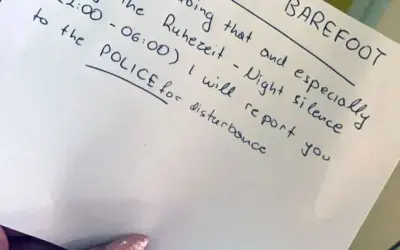 BAREFOOT
doing that and especially
the Ruhezeit - Night silence
:00 - 06:00) I will report you
to the POLICE for disturbance